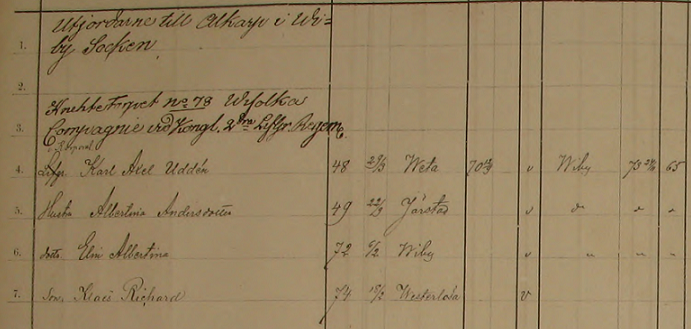 Utjordarne till Olkarp i Wi=
1. by Socken
2.
Knektetorpet No 78 Wifolka
3. Compagnie vid Kongl. 2dra Lifgr. Regem.
4. Lifgr Karl Axel Uddén 48 29/3 Weta 70 v Wiby 73 65
5. Hustru Albertina Andersdotter 49 22/9 Järstad v do " "
6. dotr. Elin Albertina 72 6/2 Wiby v " " "
7. Son, Klaes Richard 74 18/2 Westerlösa v